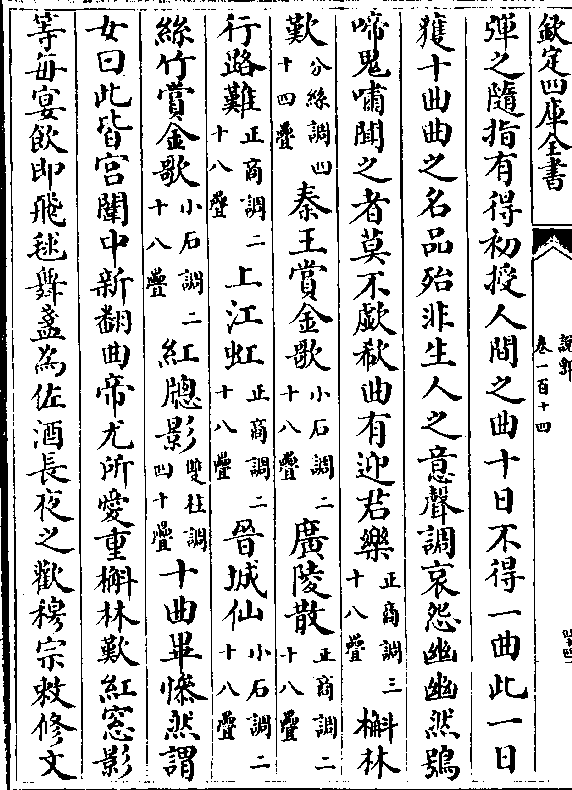 欽定四庫全書
說郛
卷一百十四
彈之隨指有得初授人間之曲十日不得一曲此一日
獲十曲曲之名品殆非生人之意聲調哀怨幽幽然鴞
啼鬼嘯聞之者莫不歔欷曲有迎君樂正商調三十八疊槲林
歎分絲調四十四疊秦王賞金歌小石調二十八疊廣陵散正商調二十八疊
行路難正商調二十八疊上江虹正商調二十八疊晉城仙小石調二十八疊
絲竹賞金歌小石調二十八疊紅牕影雙柱調四十疊十曲畢慘然謂
女曰此皆宮闈中新翻曲帝尤所愛重槲林歎紅窓影
等每宴飲即飛毬舞盞為佐酒長夜之歡穆宗敕修文